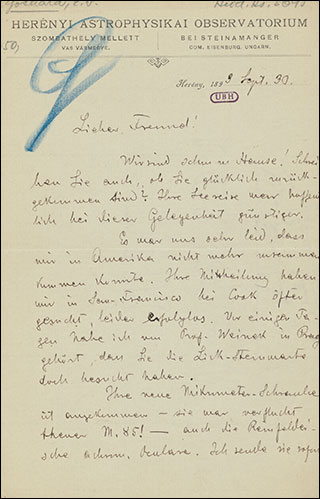 HERÉNYI ASTROPHYSIKAI OBSERVATORIUM
SZOMBATHELY MELLETT
VAS VÁRMEGYE.
BEI STEINAMANGER
COM. EISENBURG, UNGARN.
50,
Herény, 1893 Sept. 30.
UBH
Lieber Freund!
Wir sind schon zu Hause! Schrei
ben Sie auch, ob Sie glücklich zurück-
gekommen sind? Ihre Seereise war hoffent
lich bei dieser Gelegenheit günstiger.
Es war uns sehr leid, dass
wir in Amerika nicht mehr zusammen
kommen konnten. Ihre Mittheilung haben
wir in San-Francisco bei Cook öfter
gesucht, leider erfolglos. Vor einigen Ta-
gen habe ich von Prof. Weinek in Prag
gehört, dass Sie die Lick-Sternwarte
doch besucht haben.
Ihre neue Mikrometer-Schraube
ist angekommen – sie war verflucht
theuer M. 85! – auch die Reinfelder-
sche achrom. Oculare. Ich sende sie sofort